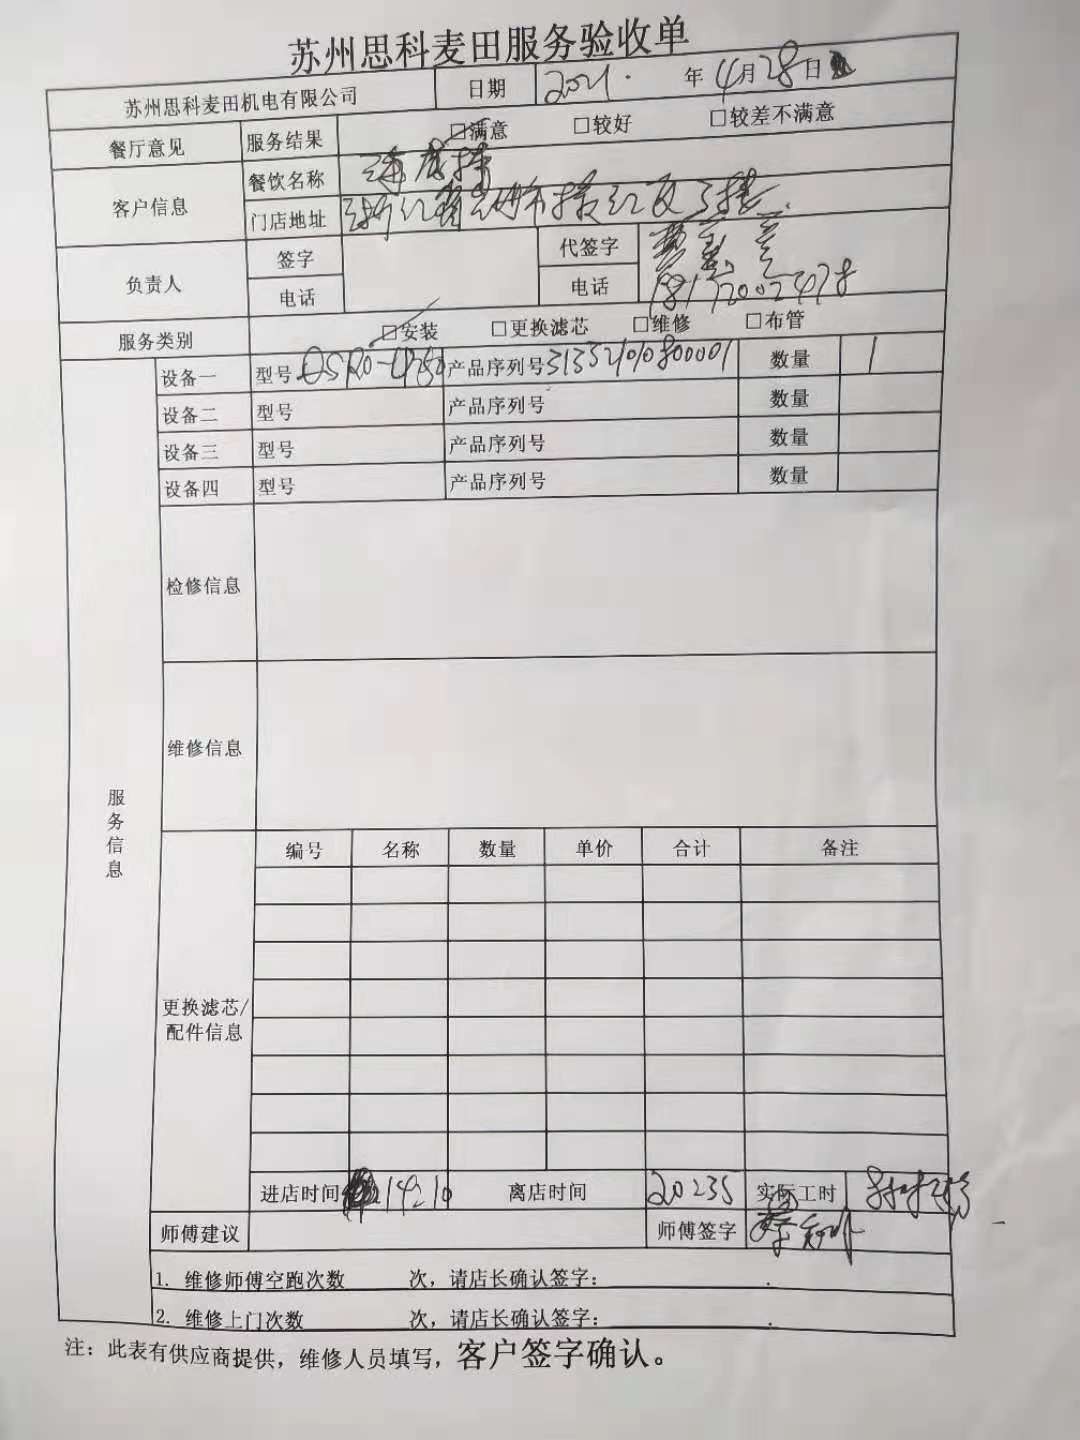 苏州思科麦田服务验收单
苏州思科麦田机电有限公司 日期 2021. 年 4月28日
餐厅意见 服务结果 □满意 □较好 □较差不满意
客户信息 餐饮名称
门店地址
负责人 签字 代签字
电话 电话
服务类别 □安装 □更换滤芯 □维修 □布管
服务信息
设备一 型号 产品序列号 313321010800001 数量 1
设备二 型号 产品序列号 数量
设备三 型号 产品序列号 数量
设备四 型号 产品序列号 数量
检修信息
维修信息
更换滤芯/
配件信息
编号 名称 数量 单价 合计 备注
进店时间 14210 离店时间 20235 实际工时
师傅建议 师傅签字
1. 维修师傅空跑次数 次，请店长确认签字： .
2. 维修上门次数 次，请店长确认签字： .
注：此表有供应商提供，维修人员填写，客户签字确认。